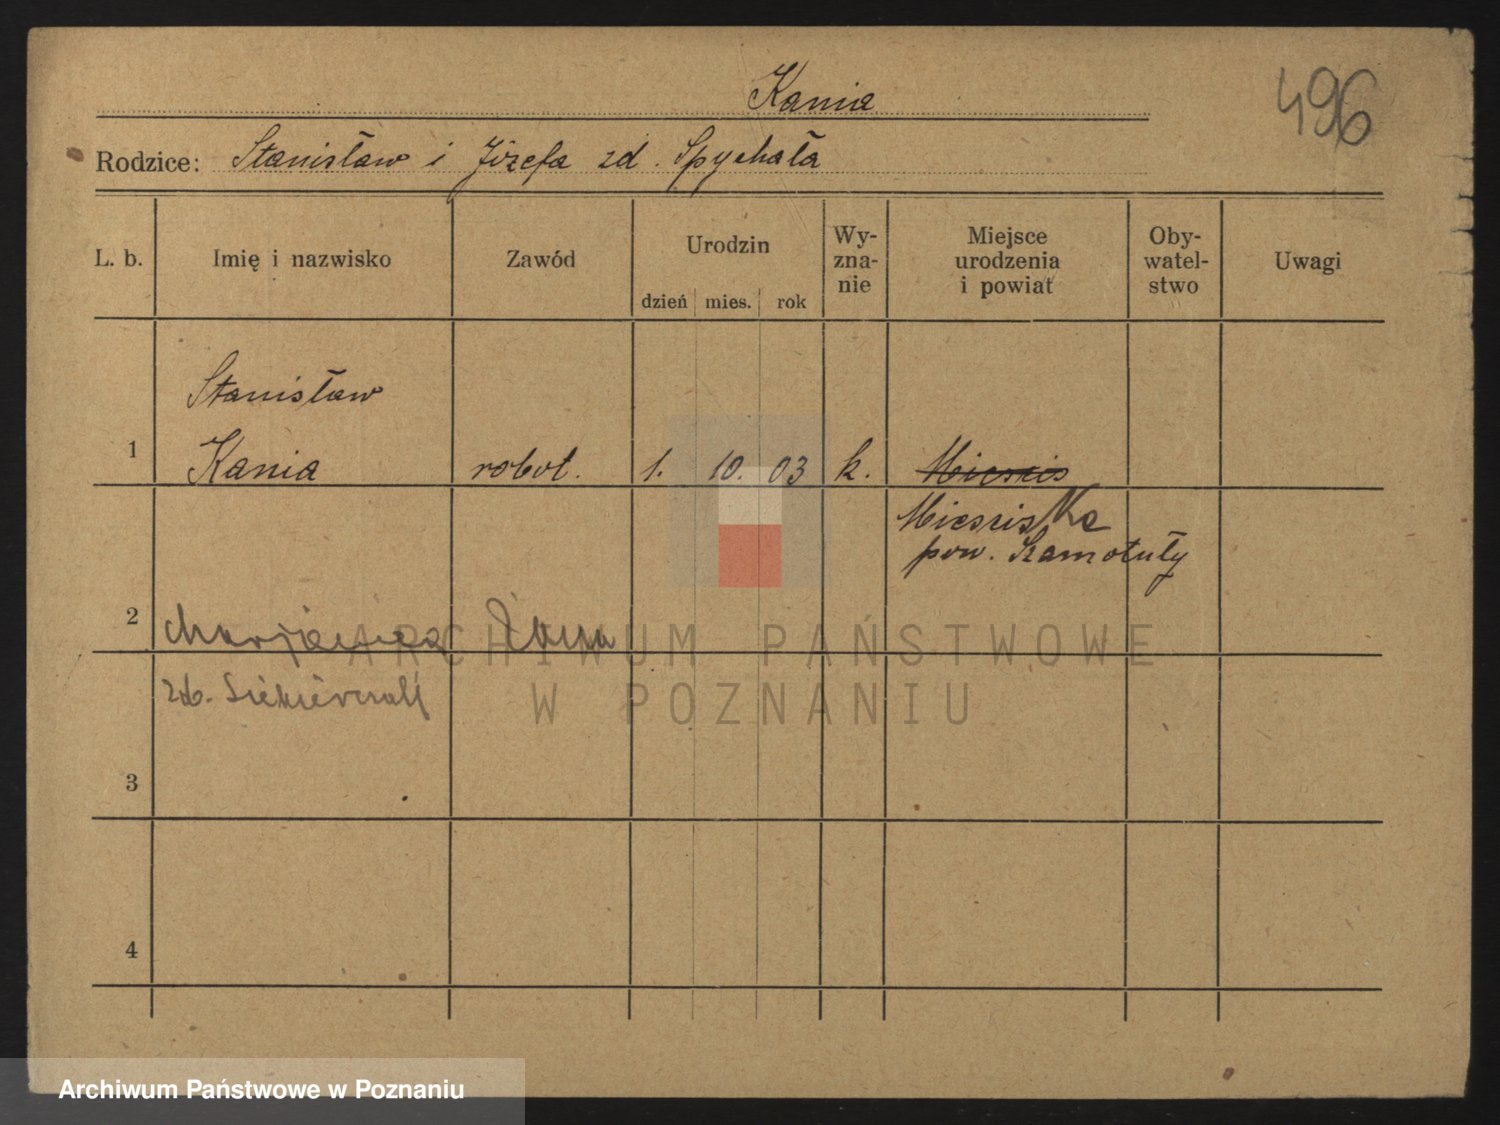 Kania
496
Rodzice: Stanisław i Józefa zd. Spychała
L. b.
Imię i nazwisko
Zawód
Urodzin
dzień mies. rok
Wy-
zna-
nie
Miejsce
urodzenia
i powiat
Oby-
watel-
stwo
Uwagi
Stanisław
1 Kania robot. 1. 10. 03 k.
pow. Szamotuły
2
zd.
3
4
ARCHIWUM PAŃSTWOWE
W POZNANIU
Archiwum Państwowe w Poznaniu